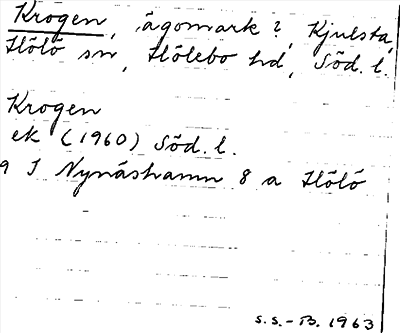 Krogen, ägomark?, Kjulsta,
Hölö sn, Hölebo hd, Söd. l.
Krogen
ek (1960) Söd. l.
9 I Nynäshamn 8 a Hölö
S.S.-B. 1963